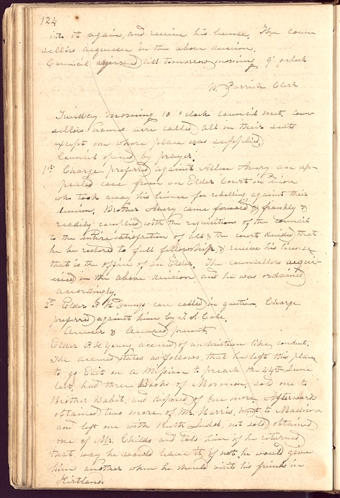 124
into it again, and receive his license, The coun
sellors acquiesce in the above decision.
Council adjourned till tomorrow morning 9 o'clock
W. Parrish Clerk
Tuesday morning 10 o'clock council met, coun
sellors names were called all on their seats
except one whose place was supplied
Council opened by prayer.
1st Charge preferred against Allen Avery an ap-
pealed case from an Elder Court in Zion
who took away his license for rebelling against their
decision, Brother Avery came forward & frankly &
readily complied with the requisitions of the council
to the entire satisfaction of the court decided that
he be restored to full fellowship & receive his license
that is the office of an Elder. The counsellors acqui-
esced in the above decision and he was ordained
accordingly.
2d Elder P. H. Young case called in question, Charge
preferred against him by J. S. Cole.
Accuser & Accused present
Elder P. H. Young, accused of unchristian like conduct.
The accused states as follows, that he left this place
to go East on a Mission to preach the 24th June
last, had three Books of Mormon, sold one to
Brother and disposed of one more, Afterwards
obtained two more of Mr. Harris, went to Madison
and left one with Ruth not sold, obtained
one of Mr. Childs and told him if he returned
that way he would leave it, if not he would give
him another when he should visit his friends in
Kirtland